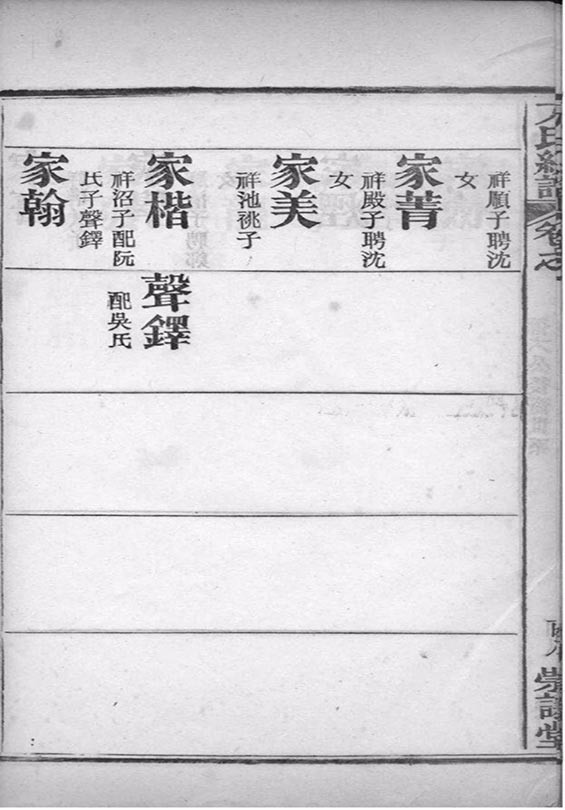 卷之
祥順子聘沈
女
家菁
祥殿子聘沈
女
家美
祥池祧子
家楷
祥沼子配阮
氏子聲鐸
家翰
聲鐸
配吳氏